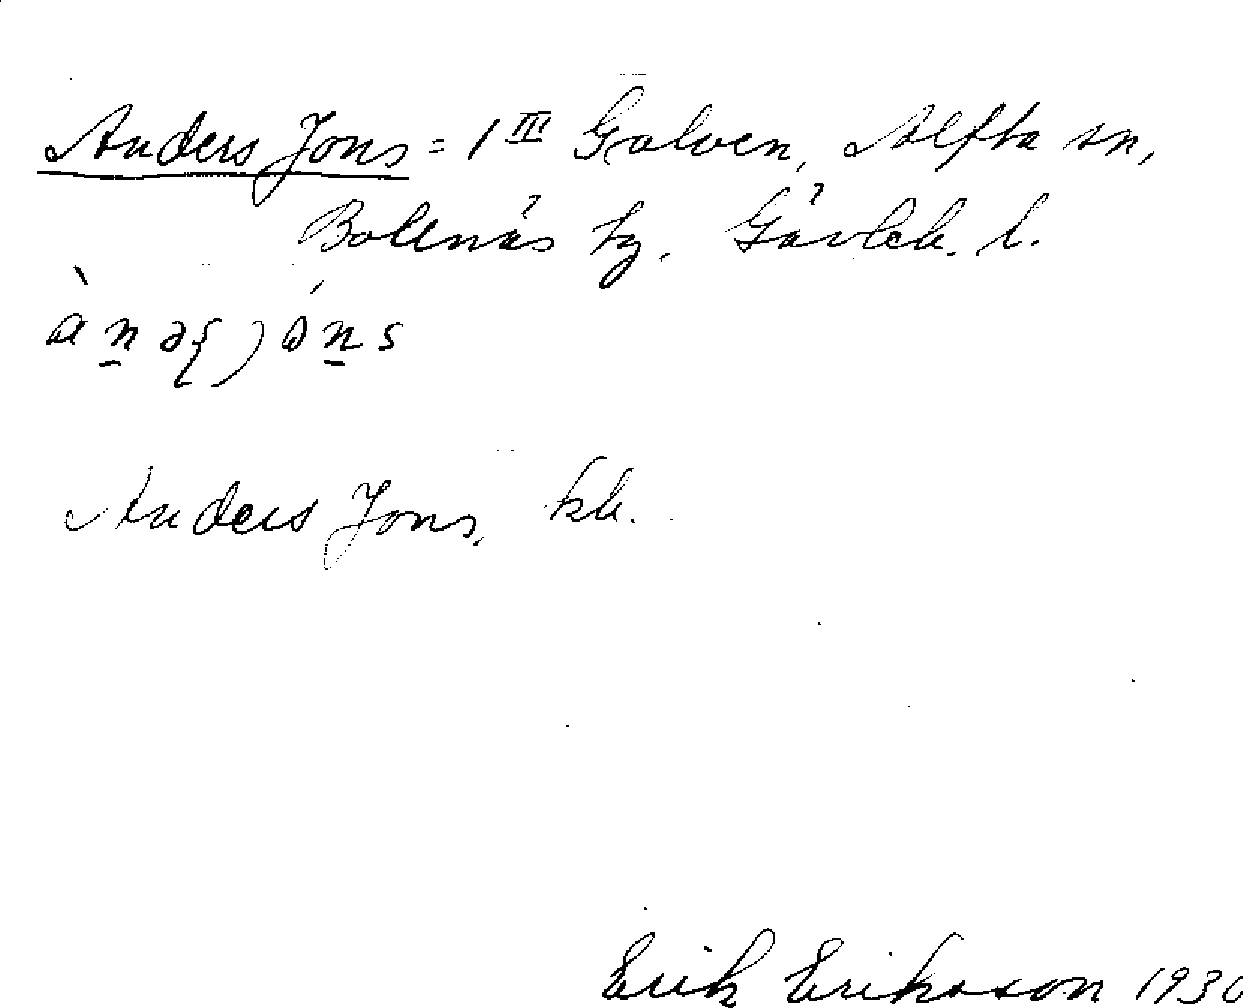 Anders Jons = 1 III Galven, Alfta sn,
Bollnäs tg. Gävleb. l.
Anders Jons, kh.
Erik Eriksson 1930